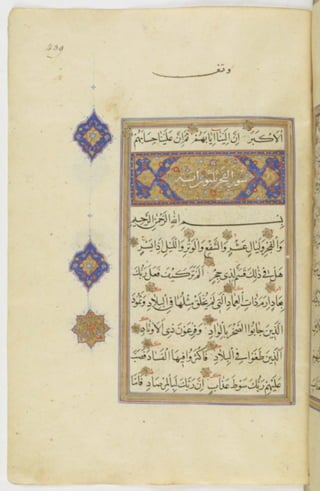 وقف
الْاَكْبَرَ اِنَّ اِلَيْنَا اِيَابَهُمْ ثُمَّ اِنَّ عَلَيْنَا حِسَابَهُمْ
سورة الفجر
بِسْمِ اللهِ الرَّحْمٰنِ الرَّحِيمِ
وَالْفَجْرِ وَلَيَالٍ عَشْرٍ وَالشَّفْعِ وَالْوَتْرِ وَاللَّيْلِ اِذَا يَسْرِ
هَلْ فِي ذٰلِكَ قَسَمٌ لِذِي حِجْرٍ اَلَمْ تَرَ كَيْفَ فَعَلَ رَبُّكَ
بِعَادٍ اِرَمَ ذَاتِ الْعِمَادِ الَّتِي لَمْ يُخْلَقْ مِثْلُهَا فِي الْبِلَادِ وَثَمُودَ
الَّذِينَ جَابُوا الصَّخْرَ بِالْوَادِ وَفِرْعَوْنَ ذِي الْاَوْتَادِ
الَّذِينَ طَغَوْا فِي الْبِلَادِ فَاَكْثَرُوا فِيهَا الْفَسَادَ فَصَبَّ
عَلَيْهِمْ رَبُّكَ سَوْطَ عَذَابٍ اِنَّ رَبَّكَ لَبِالْمِرْصَادِ فَاَمَّا